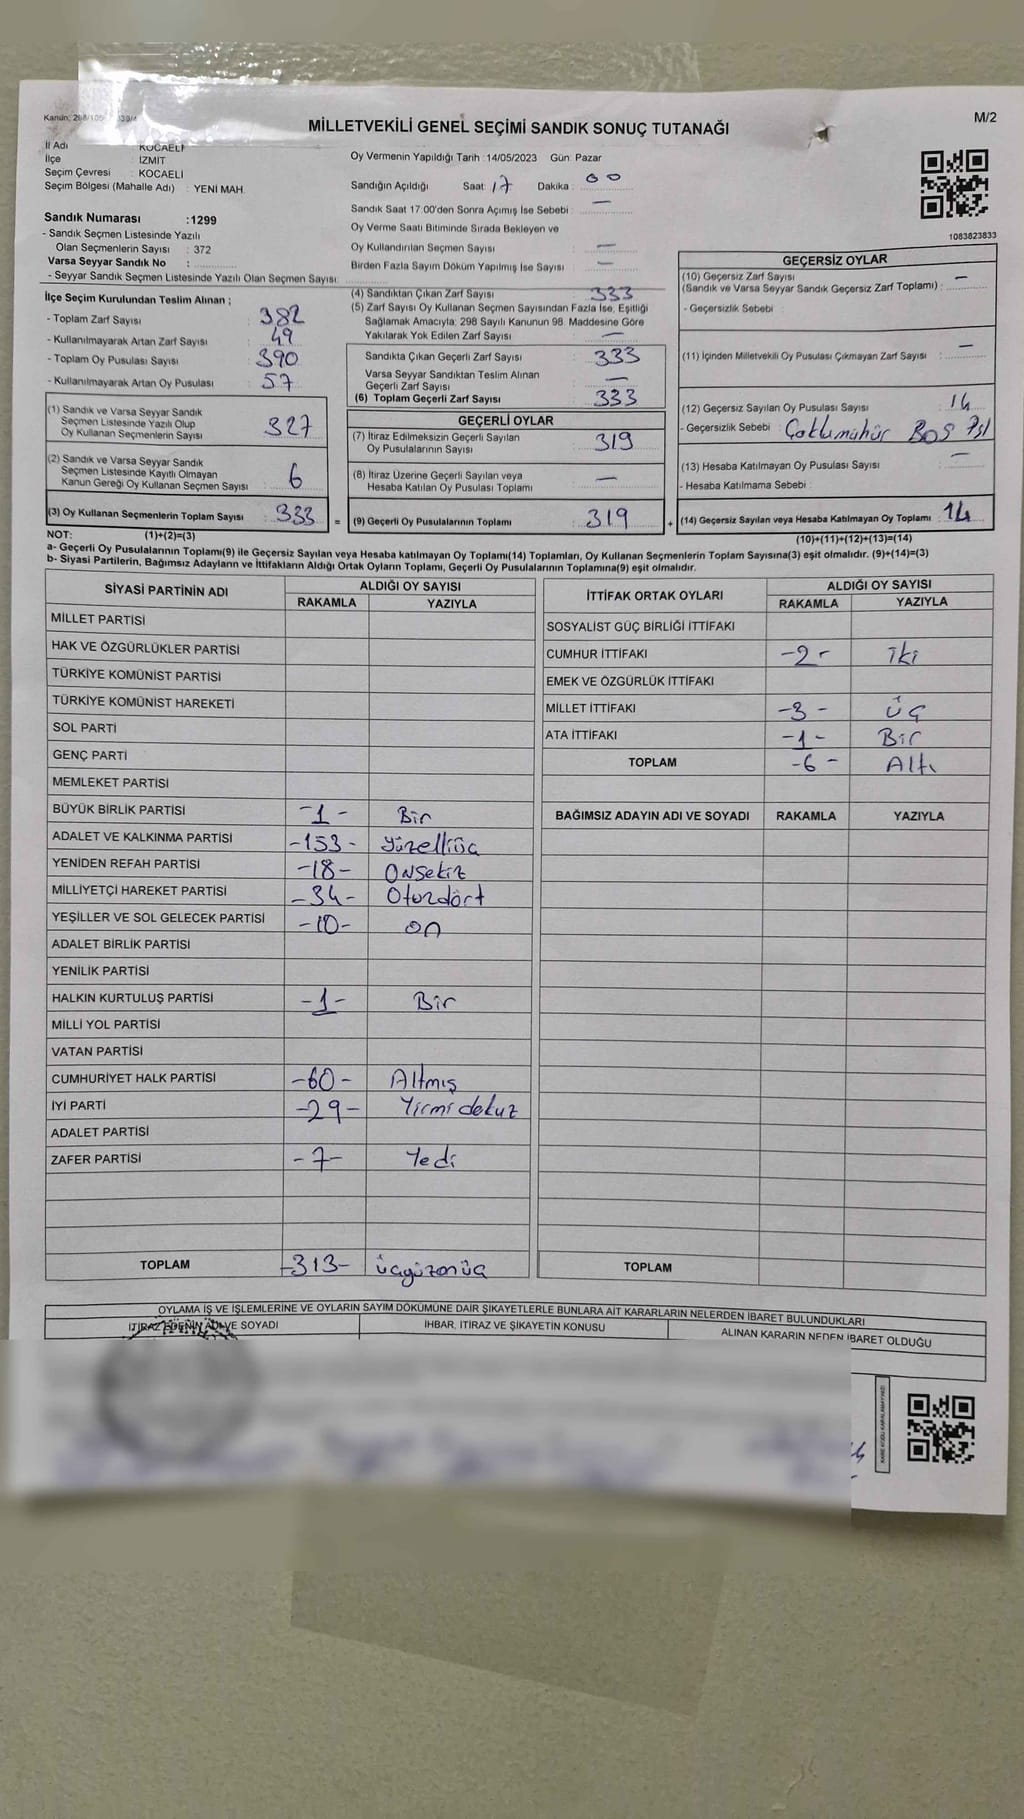 M/2
MİLLETVEKİLİ GENEL SEÇİMİ SANDIK SONUÇ TUTANAĞI
İl Adı : KOCAELİ
İlçe : İZMİT
Seçim Çevresi : KOCAELİ
Seçim Bölgesi (Mahalle Adı) : YENİ MAH.
Sandık Numarası :1299
- Sandık Seçmen Listesinde Yazılı
Olan Seçmenlerin Sayısı : 372
Varsa Seyyar Sandık No :
- Seyyar Sandık Seçmen Listesinde Yazılı Olan Seçmen Sayısı:
Oy Vermenin Yapıldığı Tarih : 14/05/2023 Gün: Pazar
Sandığın Açıldığı Saat: 17 Dakika : 00
Sandık Saat 17:00'den Sonra Açımış İse Sebebi : —
Oy Verme Saati Bitiminde Sırada Bekleyen ve
Oy Kullandırılan Seçmen Sayısı : —
Birden Fazla Sayım Döküm Yapılmış İse Sayısı : —
1083823833
İlçe Seçim Kurulundan Teslim Alınan ;
- Toplam Zarf Sayısı : 382
- Kullanılmayarak Artan Zarf Sayısı : 49
- Toplam Oy Pusulası Sayısı : 390
- Kullanılmayarak Artan Oy Pusulası : 57
(1) Sandık ve Varsa Seyyar Sandık
Seçmen Listesinde Yazılı Olup
Oy Kullanan Seçmenlerin Sayısı : 327
(2) Sandık ve Varsa Seyyar Sandık
Seçmen Listesinde Kayıtlı Olmayan
Kanun Gereği Oy Kullanan Seçmen Sayısı : 6
(3) Oy Kullanan Seçmenlerin Toplam Sayısı : 333
(4) Sandıktan Çıkan Zarf Sayısı : 333
(5) Zarf Sayısı Oy Kullanan Seçmen Sayısından Fazla İse, Eşitliği
Sağlamak Amacıyla; 298 Sayılı Kanunun 98. Maddesine Göre
Yakılarak Yok Edilen Zarf Sayısı : —
Sandıkta Çıkan Geçerli Zarf Sayısı : 333
Varsa Seyyar Sandıktan Teslim Alınan
Geçerli Zarf Sayısı : —
(6) Toplam Geçerli Zarf Sayısı : 333
GEÇERLİ OYLAR
(7) İtiraz Edilmeksizin Geçerli Sayılan
Oy Pusulalarının Sayısı : 319
(8) İtiraz Üzerine Geçerli Sayılan veya
Hesaba Katılan Oy Pusulası Toplamı : —
= (9) Geçerli Oy Pusulalarının Toplamı : 319
GEÇERSİZ OYLAR
(10) Geçersiz Zarf Sayısı
(Sandık ve Varsa Seyyar Sandık Geçersiz Zarf Toplamı) : —
- Geçersizlik Sebebi :
(11) İçinden Milletvekili Oy Pusulası Çıkmayan Zarf Sayısı : —
(12) Geçersiz Sayılan Oy Pusulası Sayısı : 14
- Geçersizlik Sebebi : Çoklumühür Boş
(13) Hesaba Katılmayan Oy Pusulası Sayısı : —
- Hesaba Katılmama Sebebi :
+ (14) Geçersiz Sayılan veya Hesaba Katılmayan Oy Toplamı : 14
NOT: (1)+(2)=(3) (10)+(11)+(12)+(13)=(14)
a- Geçerli Oy Pusulalarının Toplamı(9) ile Geçersiz Sayılan veya Hesaba katılmayan Oy Toplamı(14) Toplamları, Oy Kullanan Seçmenlerin Toplam Sayısına(3) eşit olmalıdır. (9)+(14)=(3)
b- Siyasi Partilerin, Bağımsız Adayların ve İttifakların Aldığı Ortak Oyların Toplamı, Geçerli Oy Pusulalarının Toplamına(9) eşit olmalıdır.
SİYASİ PARTİNİN ADI ALDIĞI OY SAYISI
RAKAMLA YAZIYLA
MİLLET PARTİSİ
HAK VE ÖZGÜRLÜKLER PARTİSİ
TÜRKİYE KOMÜNİST PARTİSİ
TÜRKİYE KOMÜNİST HAREKETİ
SOL PARTİ
GENÇ PARTİ
MEMLEKET PARTİSİ
BÜYÜK BİRLİK PARTİSİ -1- Bir
ADALET VE KALKINMA PARTİSİ -153- Yüzelliüç
YENİDEN REFAH PARTİSİ -18- Onsekiz
MİLLİYETÇİ HAREKET PARTİSİ -34- Otuzdört
YEŞİLLER VE SOL GELECEK PARTİSİ -10- on
ADALET BİRLİK PARTİSİ
YENİLİK PARTİSİ
HALKIN KURTULUŞ PARTİSİ -1- Bir
MİLLİ YOL PARTİSİ
VATAN PARTİSİ
CUMHURİYET HALK PARTİSİ -60- Altmış
İYİ PARTİ -29- Yirmi dokuz
ADALET PARTİSİ
ZAFER PARTİSİ -7- Yedi
TOPLAM -313- üçyüzonüç
İTTİFAK ORTAK OYLARI ALDIĞI OY SAYISI
RAKAMLA YAZIYLA
SOSYALİST GÜÇ BİRLİĞİ İTTİFAKI
CUMHUR İTTİFAKI -2- iki
EMEK VE ÖZGÜRLÜK İTTİFAKI
MİLLET İTTİFAKI -3- üç
ATA İTTİFAKI -1- Bir
TOPLAM -6- Altı
BAĞIMSIZ ADAYIN ADI VE SOYADI RAKAMLA YAZIYLA
TOPLAM
OYLAMA İŞ VE İŞLEMLERİNE VE OYLARIN SAYIM DÖKÜMÜNE DAİR ŞİKAYETLERLE BUNLARA AİT KARARLARIN NELERDEN İBARET BULUNDUKLARI
İTİRAZ EDENİN ADI VE SOYADI İHBAR, İTİRAZ VE ŞİKAYETİN KONUSU ALINAN KARARIN NEDEN İBARET OLDUĞU